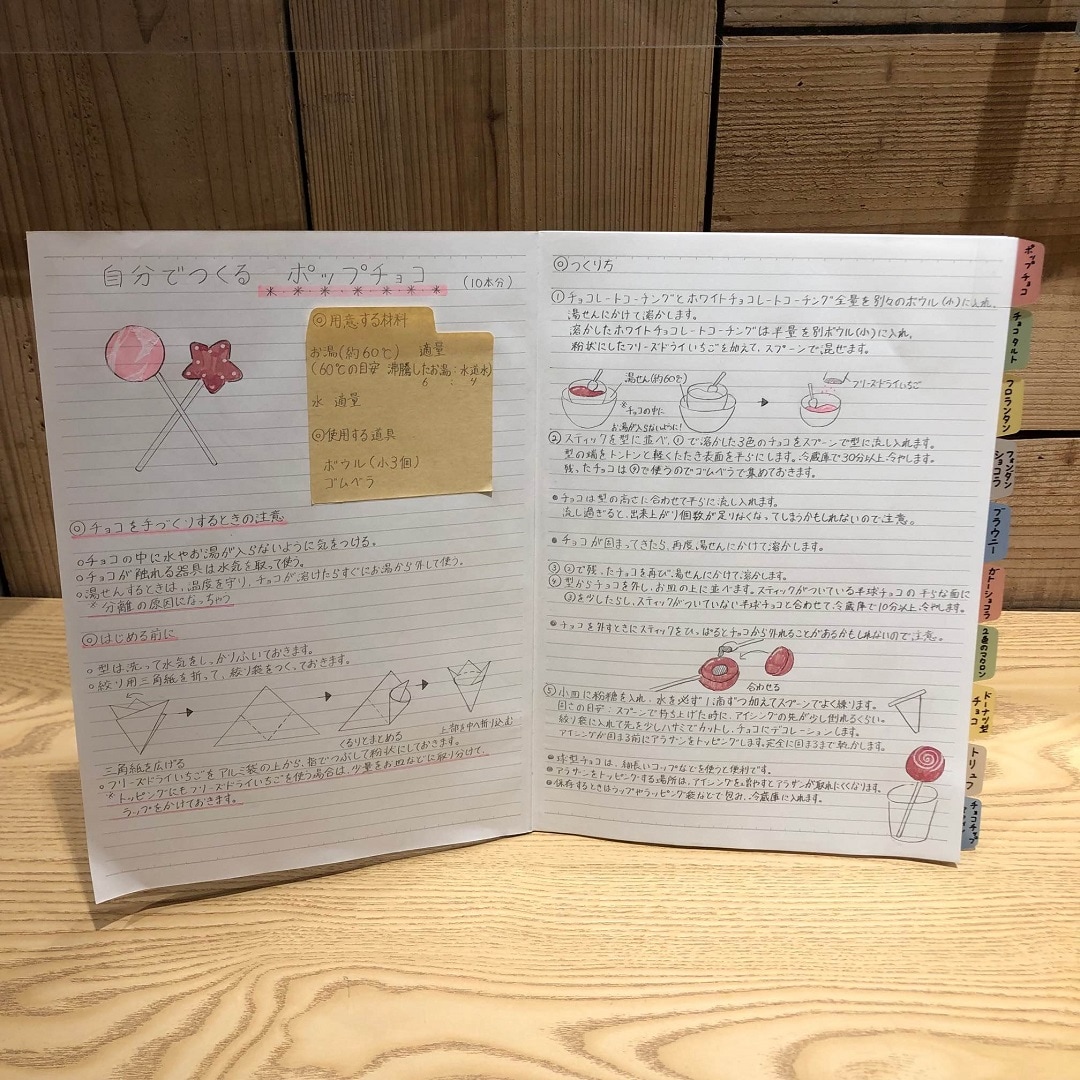 自分でつくる ポップチョコ (10本分)
◎用意する材料
お湯(約60℃) 適量
(60℃の目安 沸騰したお湯:水道水)
6 : 4
水 適量
◎使用する道具
ボウル(小3個)
ゴムベラ
◎チョコを手づくりするときの注意
○チョコの中に水やお湯が入らないように気をつける。
○チョコが触れる器具は水気を取って使う。
○湯せんするときは、温度を守り、チョコが溶けたらすぐにお湯から外して使う。
*分離の原因になっちゃう
◎はじめる前に
○型は洗って水気をしっかりふいておきます。
○絞り用三角紙を折って、絞り袋をつくっておきます。
三角紙を広げる
くるりとまとめる
上部を中へ折り込む
○フリーズドライいちごをアルミ袋の上から、指でつぶして粉状にしておきます。
*トッピングにもフリーズドライいちごを使う場合は、少量をお皿などに取り分けて、
ラップをかけておきます。
◎つくり方
①チョコレートコーチングとホワイトチョコレートコーチング全量を別々のボウル(小)に入れ、
湯せんにかけて溶かします。
溶かしたホワイトチョコレートコーチングは半量を別ボウル(小)に入れ、
粉状にしたフリーズドライいちごを加えて、スプーンで混ぜます。
湯せん(約60℃)
*チョコの中に
お湯が入らないように!
フリーズドライいちご
②スティックを型に並べ、①で溶かした3色のチョコをスプーンで型に流し入れます。
型の端をトントンと軽くたたき表面を平らにします。冷蔵庫で30分以上冷やします。
残ったチョコは③で使うのでゴムベラで集めておきます。
●チョコは型の高さに合わせて平らに流し入れます。
流し過ぎると、出来上がり個数が足りなくなってしまうかもしれないので注意。
●チョコが固まってきたら、再度湯せんにかけて溶かします。
③②で残ったチョコを再び湯せんにかけて溶かします。
④型からチョコを外し、お皿の上に並べます。スティックがついている半球チョコの平らな面に
③を少したらし、スティックがついていない半球チョコと合わせて、冷蔵庫で10分以上冷やします。
●チョコを外すときにスティックをひっぱるとチョコから外れることがあるかもしれないので注意。
合わせる
⑤小皿に粉糖を入れ、水を必ず1滴ずつ加えてスプーンでよく練ります。
固さの目安:スプーンで持ち上げた時に、アイシングの先が少し倒れるくらい。
絞り袋に入れて先を少しハサミでカットし、チョコにデコレーションします。
アイシングが固まる前にアラザンをトッピングします。完全に固まるまで乾かします。
●球型チョコは、細長いコップなどを使うと便利です。
●アラザンをトッピングする場所は、アイシングを増やすとアラザンが取れにくくなります。
●保存するときはラップやラッピング袋などで包み、冷蔵庫に入れます。
ポップチョコ
チョコタルト
フロランタン
フォンダンショコラ
ブラウニー
ガトーショコラ
2色のマカロン
ドーナツ型チョコ
トリュフ
チョコチップ